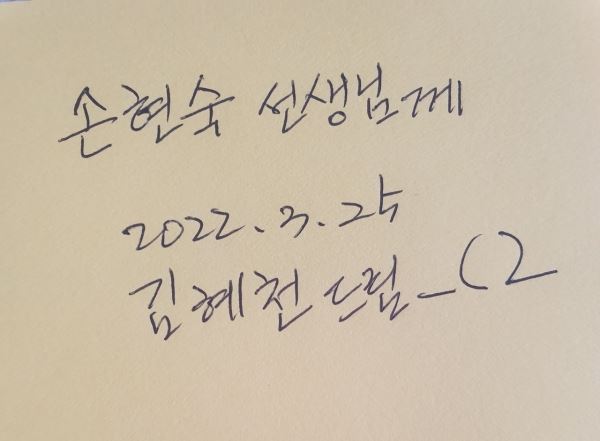 손현숙 선생님께
2022. 3. 25
김혜천 드림